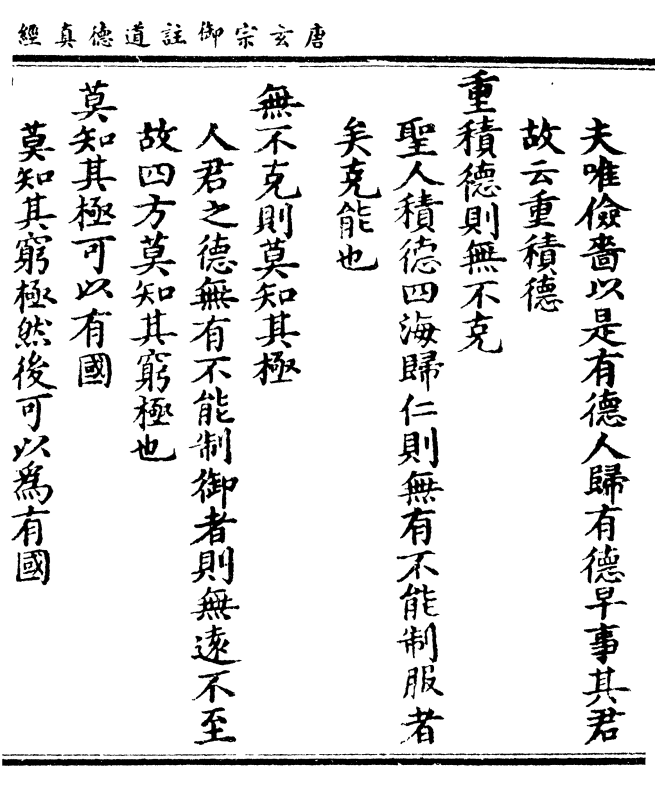 唐玄宗御註道德真經
夫唯儉嗇以是有德人歸有德早事其君
故云重積德
重積德則無不克
聖人積德四海歸仁則無有不能制服者
矣克能也
無不克則莫知其極
人君之德無有不能制御者則無遠不至
故四方莫知其窮極也
莫知其極可以有國
莫知其窮極然後可以為有國